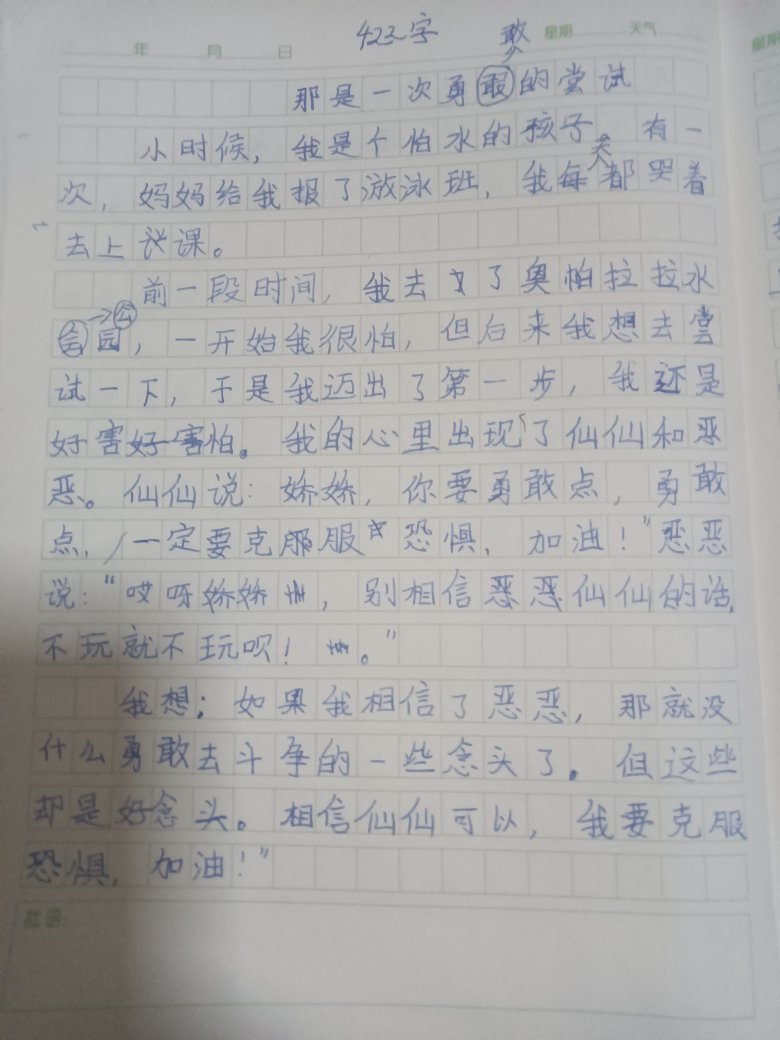 423字 敢
年 月 日 星期 天气
那是一次勇敢的尝试
小时候，我是个怕水的孩子 有一
次，妈妈给我报了游泳班，我每天都哭着
去上课。
前一段时间，我去了奥帕拉拉水
公园，一开始我很怕，但后来我想去尝
试一下，于是我迈出了第一步，我还是
好害好害怕。我的心里出现了仙仙和恶
恶。仙仙说：娇娇，你要勇敢点，勇敢
点，一定要克服 恐惧，加油！”恶恶
说：“哎呀娇娇，别相信恶恶仙仙的话，
不玩就不玩呗！。”
我想；如果我相信了恶恶，那就没
什么勇敢去斗争的一些念头了。但这些
却是好念头。相信仙仙可以，我要克服
恐惧，加油！”